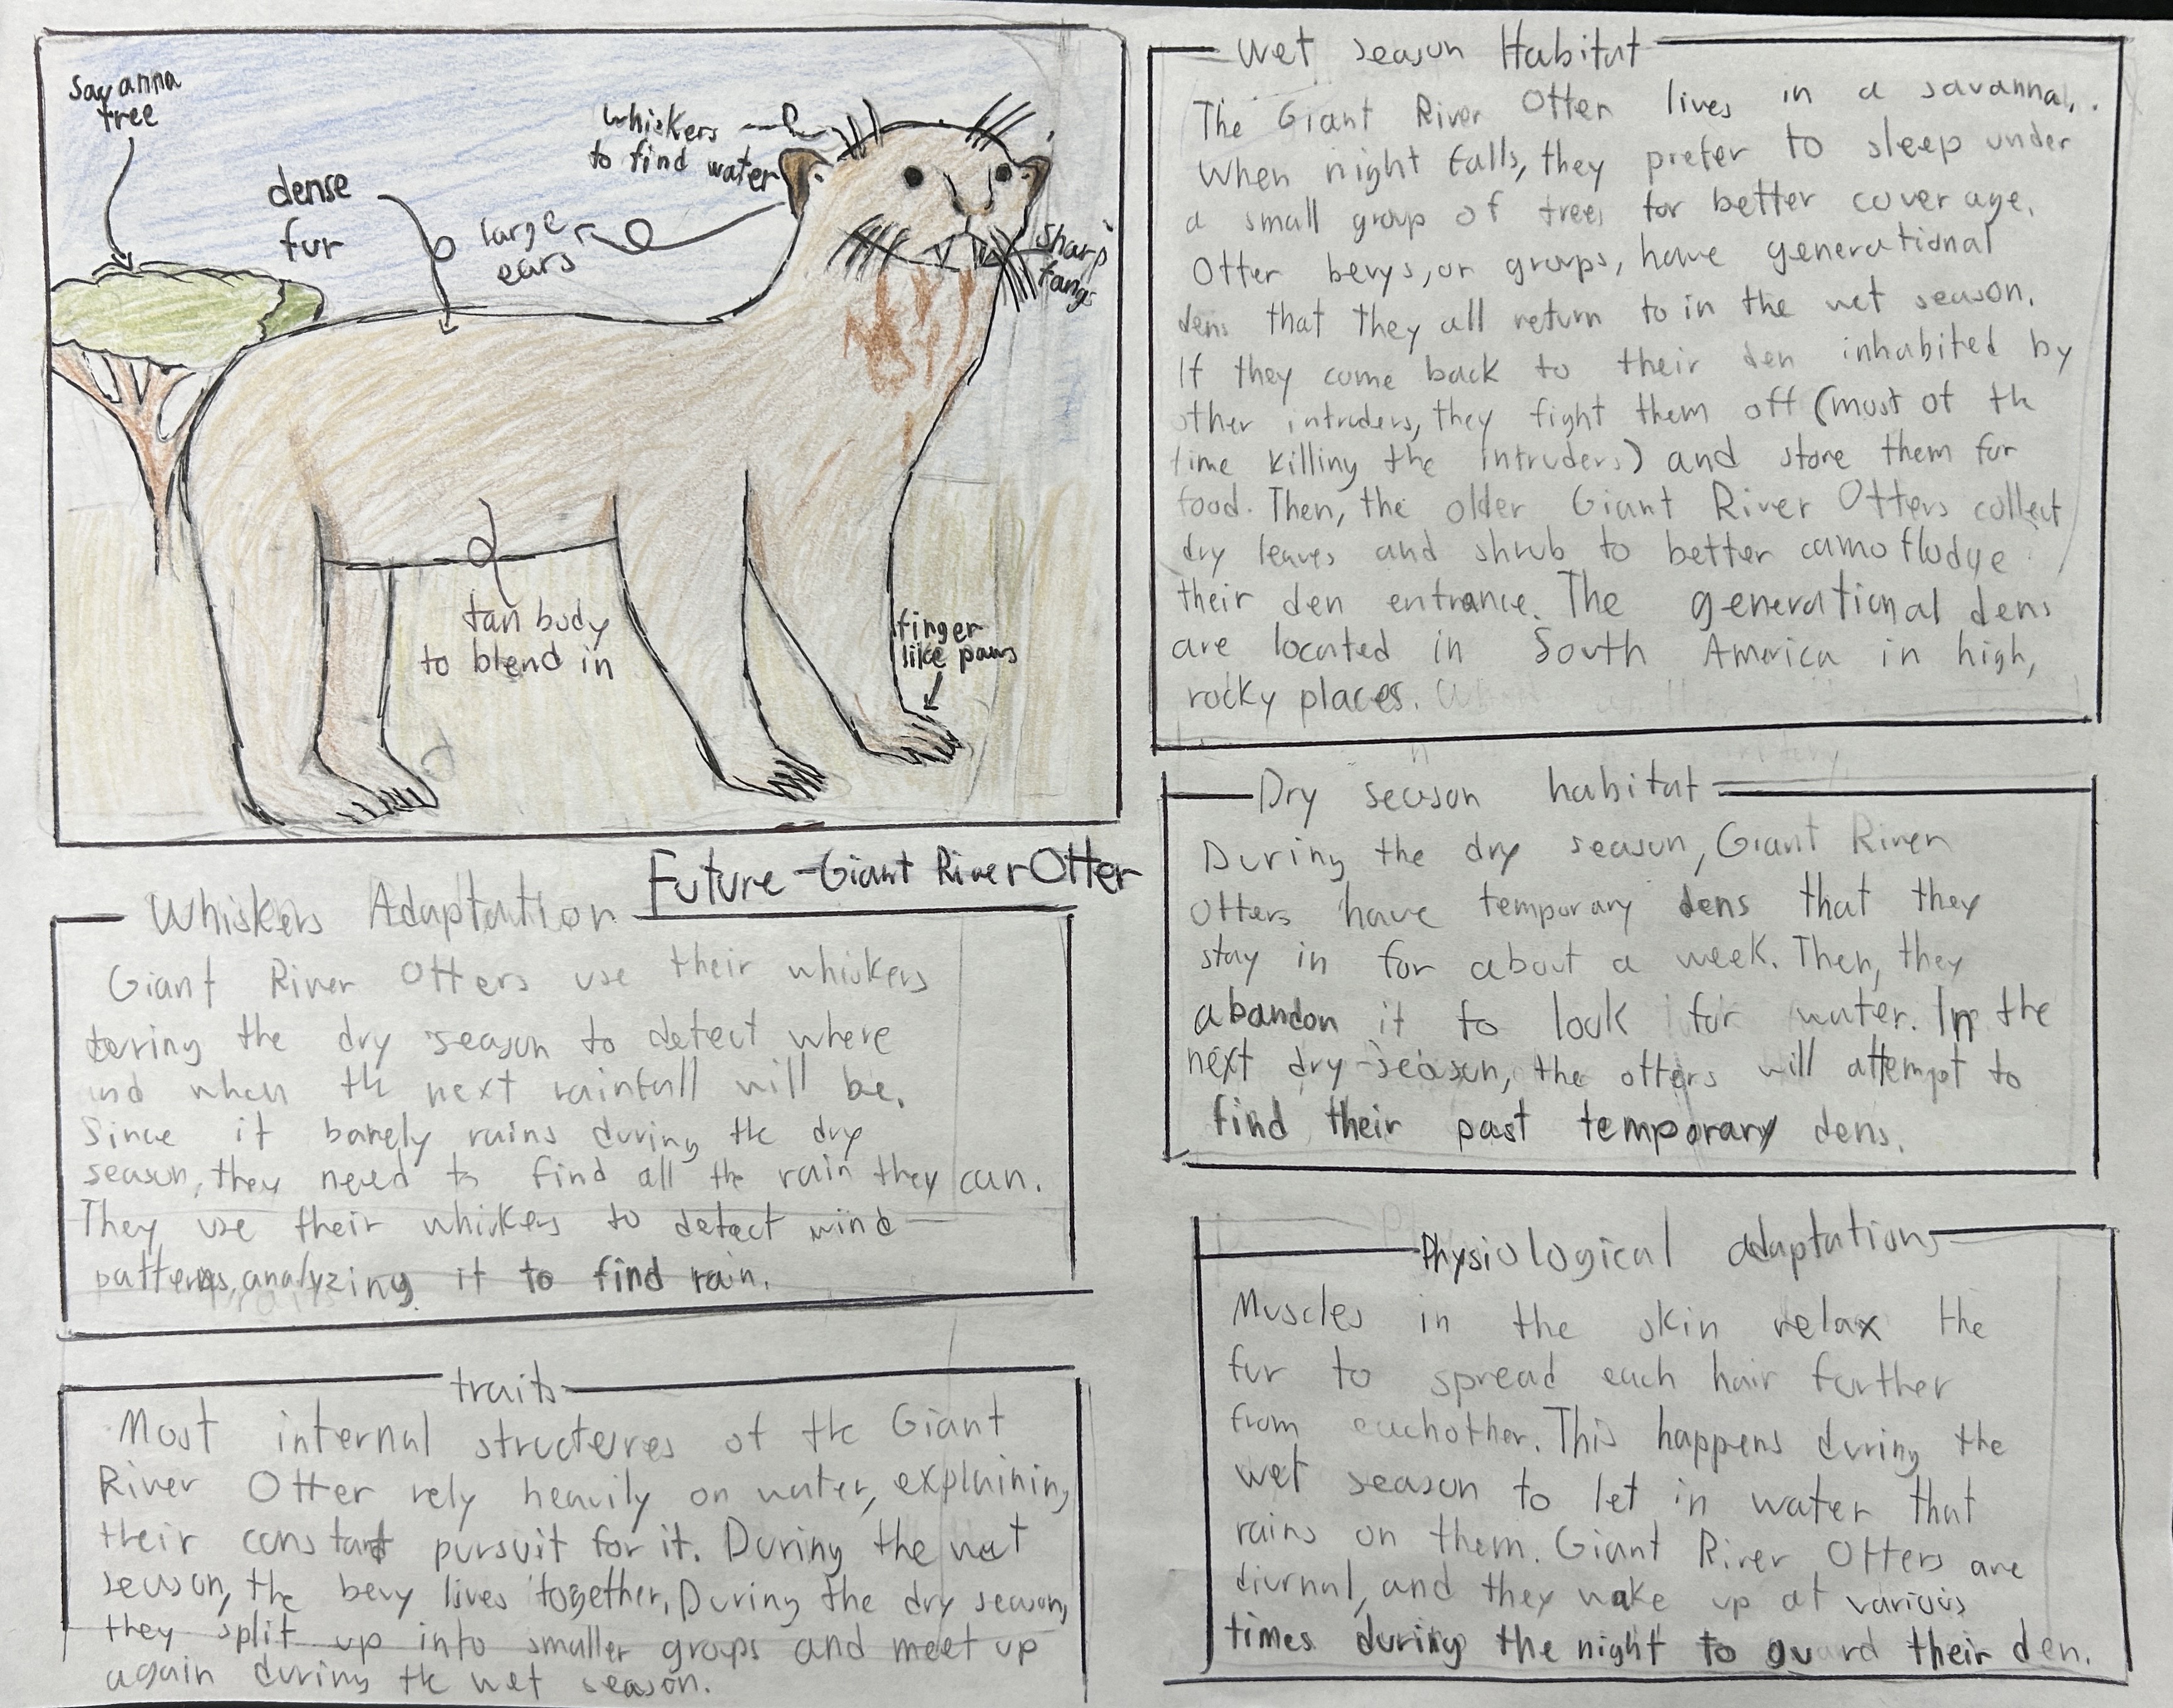 savanna
tree
dense
fur
whiskers
to find water
large
ears
sharp
fangs
tan body
to blend in
finger
like paws
Future-Giant River Otter
Whiskers Adaptation
Giant River Otters use their whiskers
during the dry season to detect where
and when the next rainfall will be.
Since it barely rains during the dry
season, they need to find all the rain they can.
They use their whiskers to detect wind
patterns, analyzing it to find rain.
traits
Most internal structures of the Giant
River Otter rely heavily on water, explaining
their constant pursuit for it. During the wet
season, the bevy lives together. During the dry season,
they split up into smaller groups and meet up
again during the wet season.
Wet season Habitat
The Giant River Otter lives in a savanna.
When night falls, they prefer to sleep under
a small group of trees for better coverage.
Otter bevys, or groups, have generational
dens that they all return to in the wet season.
If they come back to their den inhabited by
other intruders, they fight them off (most of the
time killing the intruders) and store them for
food. Then, the older Giant River Otters collect
dry leaves and shrub to better camofludge
their den entrance. The generational dens
are located in South America in high,
rocky places.
Dry season habitat
During the dry season, Giant River
Otters have temporary dens that they
stay in for about a week. Then, they
abandon it to look for water. In the
next dry-season, the otters will attempt to
find their past temporary dens.
Physiological adaptations
Muscles in the skin relax the
fur to spread each hair further
from eachother. This happens during the
wet season to let in water that
rains on them. Giant River Otters are
diurnal, and they wake up at various
times during the night to guard their den.